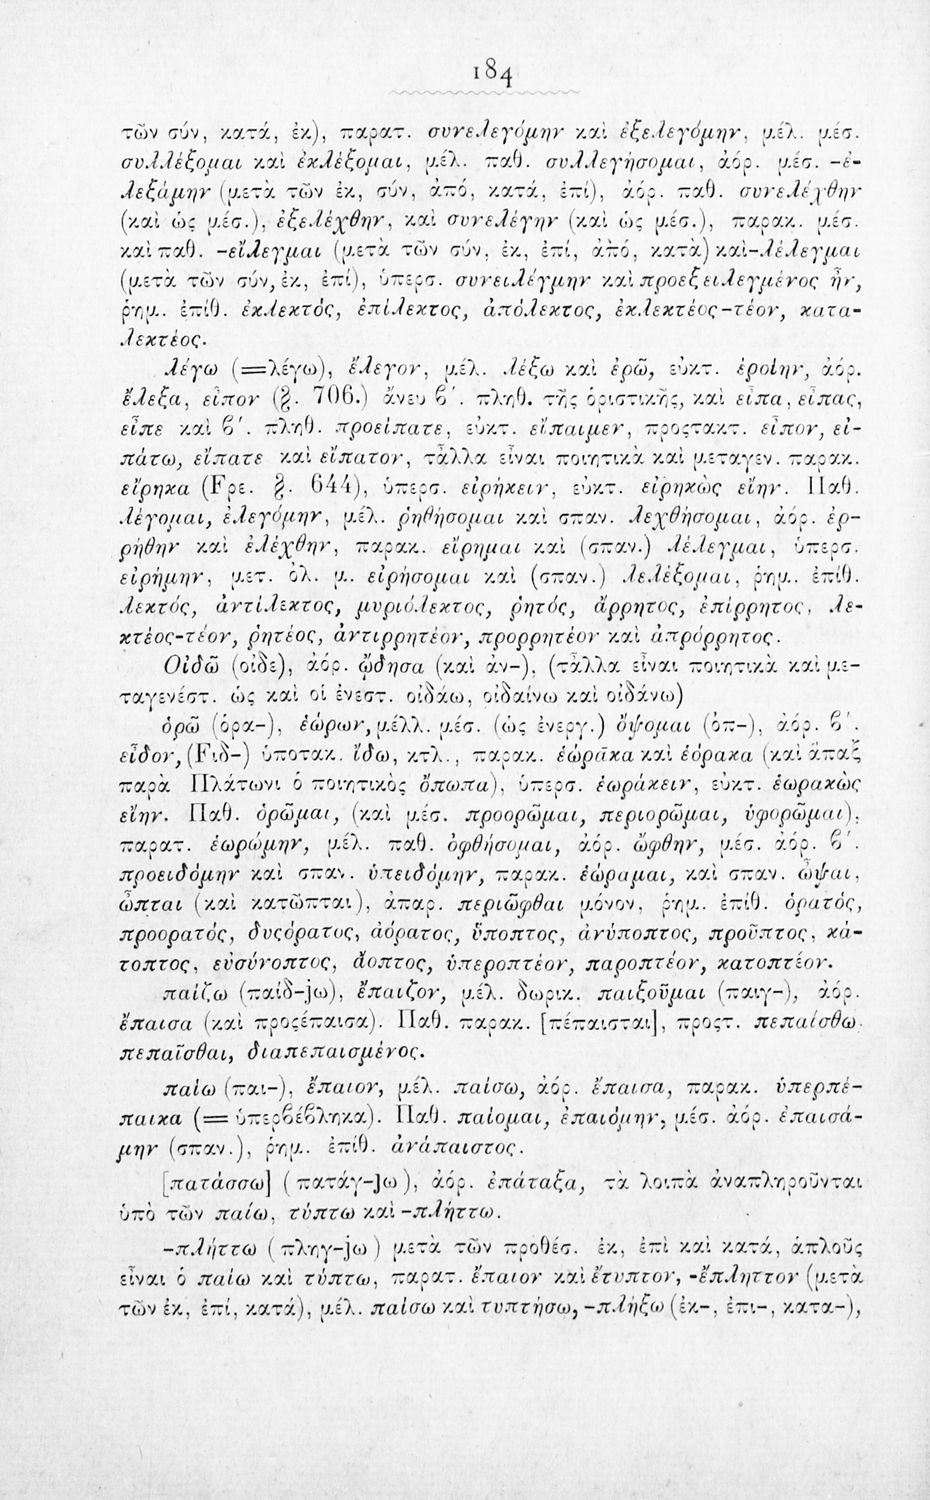 184
τῶν σύν, κατά, ἐκ), παρατ. συνελεγόμην καὶ ἐξελεγόμην, μέλ. μέσ.
συλλέξομαι καὶ ἐκλέξομαι, μέλ. παθ. συλλεγήσομαι, ἀόρ. μέσ. -ἐ-
λεξάμην (μετὰ τῶν ἐκ, σύν, ἀπό, κατά, ἐπί), ἀόρ. παθ. συνελέχθην
(καὶ ὡς μέσ.), ἐξελέχθην, καὶ συνελέγην (καὶ ὡς μέσ.), παρακ. μέσ.
καὶ παθ. -είλεγμαι (μετὰ τῶν σύν, ἐκ, ἐπί, ἀπό, κατὰ) καὶ-λέλεγμαι
(μετὰ τῶν σύν, ἐκ, ἐπί), ὑπερσ. συνειλέγμην καὶ προεξειλεγμένος ἦν,
ῥημ. ἐπίθ. ἐκλεκτός, ἐπίλεκτος, ἀπόλεκτος, ἐκλεκτέος-τέον, κατα-
λεκτέος.
λέγω (=λέγω), ἔλεγον, μέλ. λέξω καὶ ἐρῶ, εὐκτ. ἐροίην, ἀόρ.
ἔλεξα, εἶπον (§. 706.) ἄνευ ϐ΄. πληθ. τῆς ὁριστικῆς, καὶ εἶπα, εἶπας,
εἶπε καὶ ϐ΄. πληθ. προείπατε, εὐκτ. εἴπαιμεν, προςτακτ. εἶπον, εἰ-
πάτω, εἴπατε καὶ εἴπατον, τἆλλα εἶναι ποιητικὰ καὶ μεταγεν. παρακ.
εἴρηκα (Fρε. §. 644), ὑπερσ. εἰρήκειν, εὐκτ. εἰρηκὼς εἴην. Παθ.
λέγομαι, ἐλεγόμην, μέλ. ῥηθήσομαι καὶ σπαν. λεχθήσομαι, ἀόρ. ἐρ-
ρήθην καὶ ἐλέχθην, παρακ. εἴρημαι καὶ (σπαν.) λέλεγμαι, ὑπερσ.
εἰρήμην, μετ. ὀλ. μ. εἰρήσομαι καὶ (σπαν.) λελέξομαι, ῥημ. ἐπίθ.
λεκτός, ἀντίλεκτος, μυριόλεκτος, ῥητός, ἄρρητος, ἐπίρρητος, λε-
κτέος-τέον, ῥητέος, ἀντιρρητέον, προρρητέον καὶ ἀπρόρρητος.
Οἰδῶ (οἰδε), ἀόρ. ᾤδησα (καὶ ἀν-), (τἆλλα εἶναι ποιητικὰ καὶ με-
ταγενέστ. ὡς καὶ οἱ ἐνεστ. οἰδάω, οἰδαίνω καὶ οἰδάνω)
ὁρῶ (ὁρα-), ἑώρων, μέλλ. μέσ. (ὡς ἐνεργ.) ὄψομαι (ὀπ-), ἀόρ. ϐ΄.
εἶδον, (Fιδ-) ὑποτακ. ἴδω, κτλ., παρακ. ἑώρακα καὶ ἑόρακα (καὶ ἅπαξ
παρὰ Πλάτωνι ὁ ποιητικὸς ὄπωπα), ὑπερσ. ἑωράκειν, εὐκτ. ἑωρακὼς
εἴην. Παθ. ὁρῶμαι, (καὶ μέσ. προορῶμαι, περιορῶμαι, ὑφορῶμαι),
παρατ. ἑωρώμην, μέλ. παθ. ὀφθήσομαι, ἀόρ. ὤφθην, μέσ. ἀόρ. ϐ΄.
προειδόμην καὶ σπαν. ὑπειδόμην, παρακ. ἑώραμαι, καὶ σπαν. ὦψαι,
ὦπται (καὶ κατῶπται), ἀπαρ. περιῶφθαι μόνον, ῥημ. ἐπίθ. ὁρατός,
προορατός, δυςόρατος, ἀόρατος, ὕποπτος, ἀνύποπτος, προῦπτος, κά-
τοπτος, εὐσύνοπτος, ἄοπτος, ὑπεροπτέον, παροπτέον, κατοπτέον.
παίζω (παίδ-jω), ἔπαιζον, μέλ. δωρικ. παιξοῦμαι (παιγ-), ἀόρ.
ἔπαισα (καὶ προςέπαισα). Παθ. παρακ. [πέπαισται], προςτ. πεπαίσθω
πεπαῖσθαι, διαπεπαισμένος.
παίω (παι-), ἔπαιον, μέλ. παίσω, ἀόρ. ἔπαισα, παρακ. ὑπερπέ-
παικα (= ὑπερϐέϐληκα). Παθ. παίομαι, ἐπαιόμην, μέσ. ἀόρ. ἐπαισά-
μην (σπαν.), ῥημ. ἐπίθ. ἀνάπαιστος.
[πατάσσω] (πατάγ-jω), ἀόρ. ἐπάταξα, τὰ λοιπὰ ἀναπληροῦνται
ὑπὸ τῶν παίω, τύπτω καὶ -πλήττω.
-πλήττω (πληγ-jω) μετὰ τῶν προθέσ. ἐκ, ἐπὶ καὶ κατά, ἁπλοῦς
εἶναι ὁ παίω καὶ τύπτω, παρατ. ἔπαιον καὶ ἔτυπτον, -ἔπληττον (μετὰ
τῶν ἐκ, ἐπί, κατά), μέλ. παίσω καὶ τυπτήσω, -πλήξω (ἐκ-, ἐπι-, κατα-),